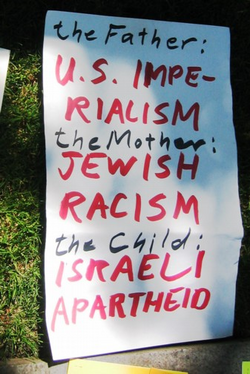 the Father:
U.S. IMPE-
RIALISM
the Mother:
JEWISH
RACISM
the Child:
ISRAELI
APARTHEID